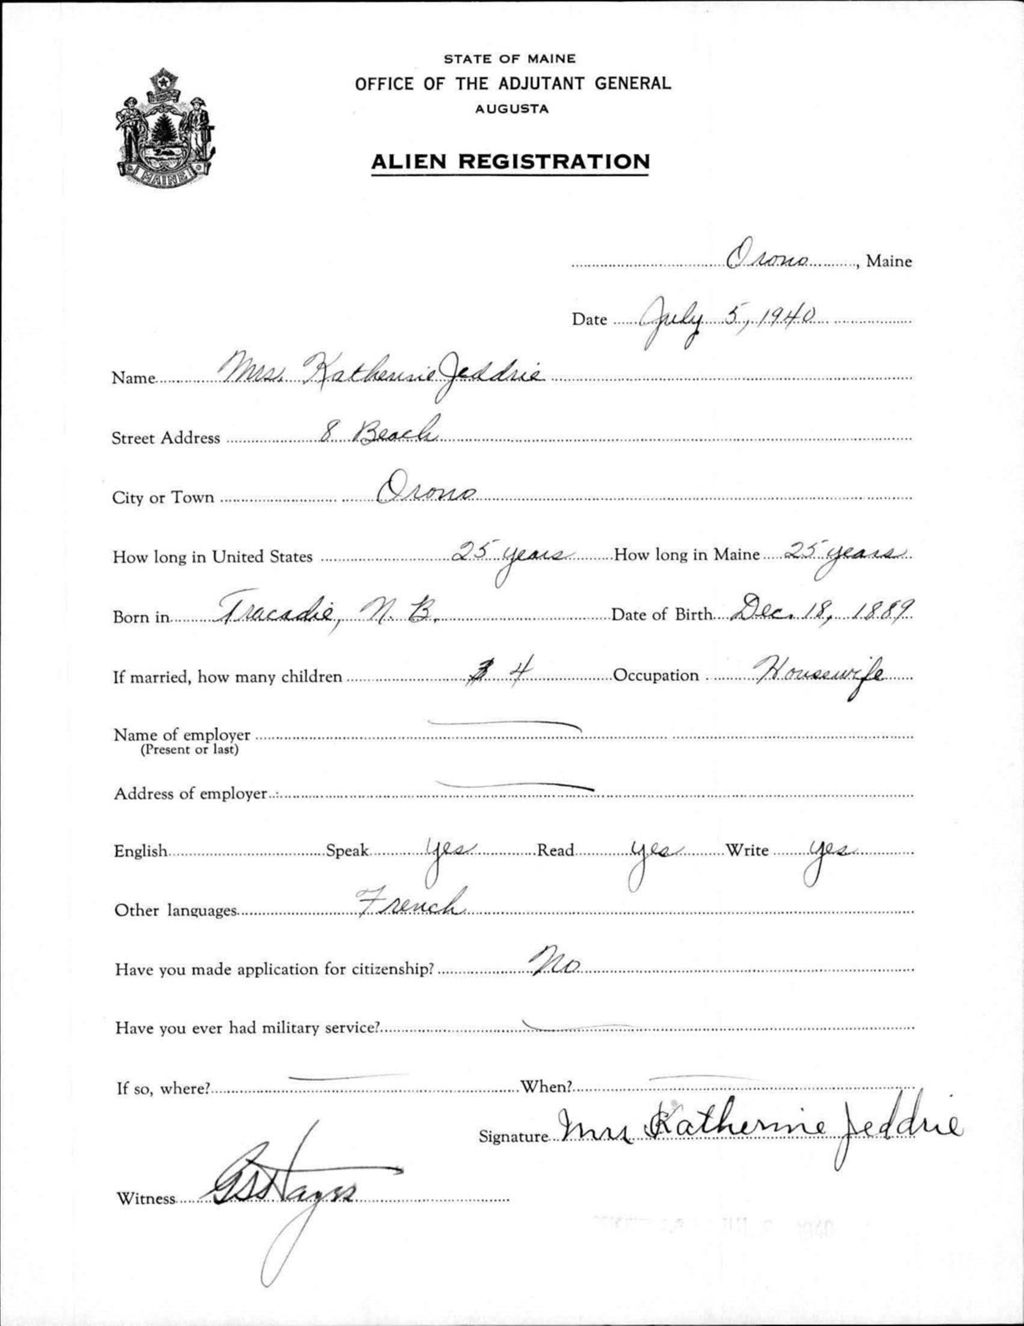 STATE OF MAINE
OFFICE OF THE ADJUTANT GENERAL
AUGUSTA
ALIEN REGISTRATION
MAINE
Orono, Maine
Date July 5, 1940
Name Mrs. Katherine Jeddrie
Street Address 8 Beach
City or Town Orono
How long in United States 25 years How long in Maine 25 years
Born in Tracadie, N. B. Date of Birth Dec. 18, 1889
If married, how many children 4 Occupation Housewife
Name of employer
(Present or last)
Address of employer
English Speak yes Read yes Write yes
Other languages French
Have you made application for citizenship? No
Have you ever had military service?
If so, where? When?
Signature Mrs Katherine Jeddrie
Witness Hayes